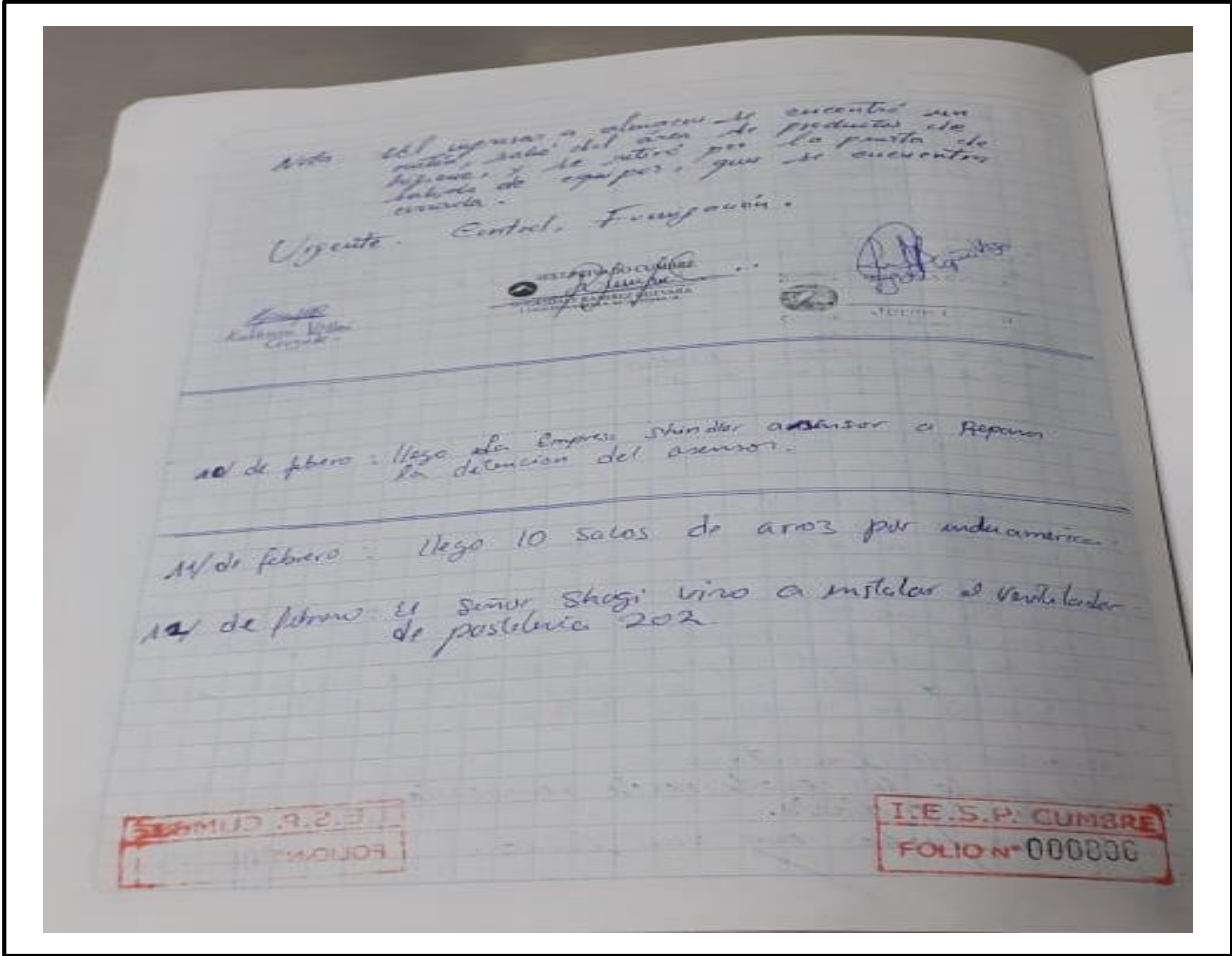 Nota Al ingresar a almacen se encontró un
salió del área de productos de
higiene, y se retiró por la puerta de
salida de equipos, que se encuentra
cerrada.
Urgente. Control, Fumigación.
10/ de febrero : llego la Empresa shindler asensor a Reparar
la detencion del asensor.
11/ de febrero : llego 10 sacos de arroz por induamerica.
12/ de febrero : El Señor Shagi vino a instalar el ventilador
de pasteleria 202
I.E.S.P. CUMBRE
FOLIO N°